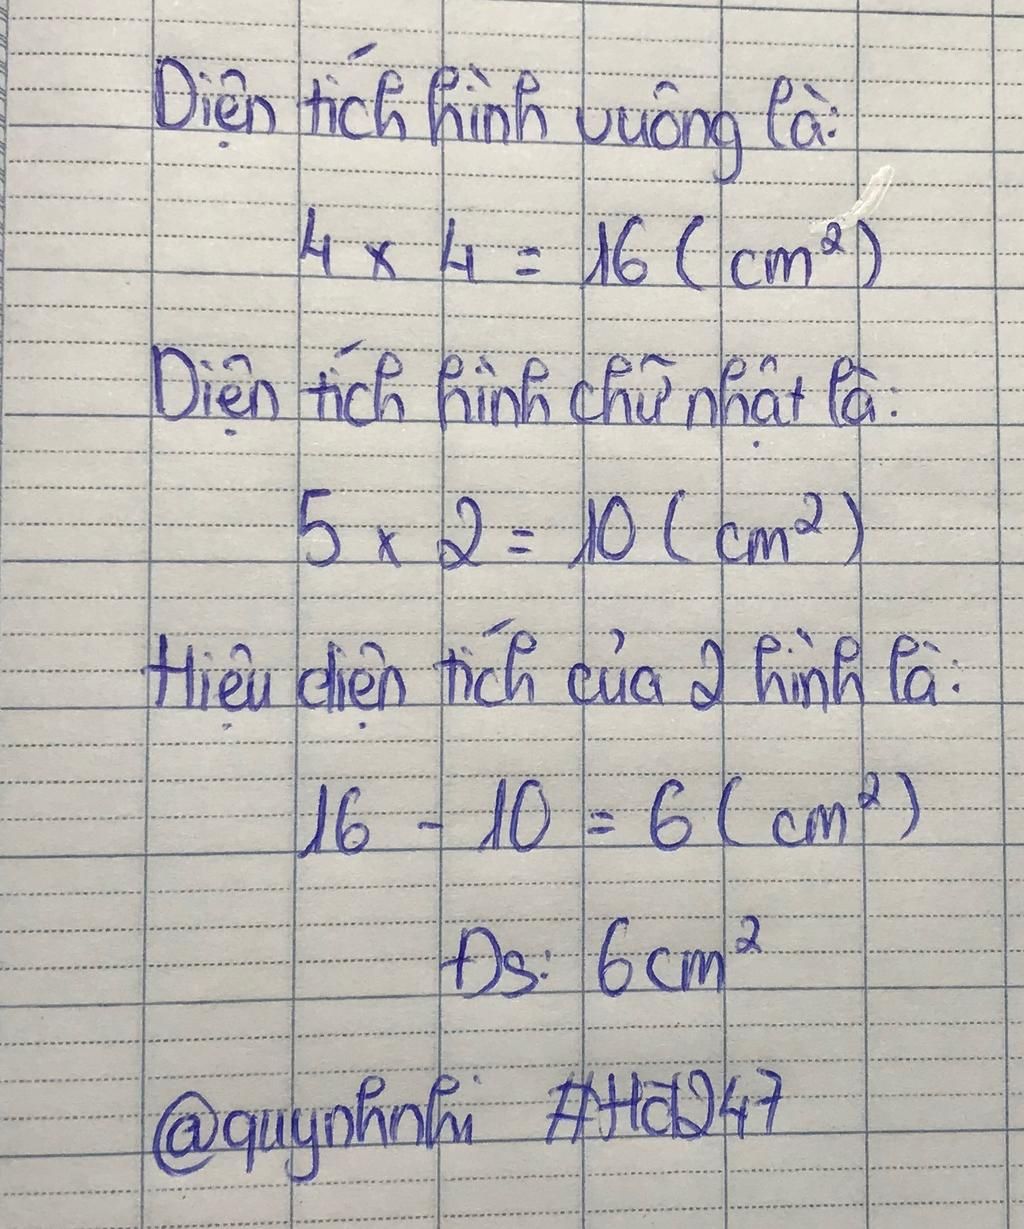 Diện tích hình vuông là:
4 x 4 = 16 ( cm²)
Diện tích hình chữ nhật là:
5 x 2 = 10 ( cm²)
Hiệu diện tích của 2 hình là:
16 - 10 = 6 ( cm²)
Đs: 6cm²
@quynhnhi #Hđ247